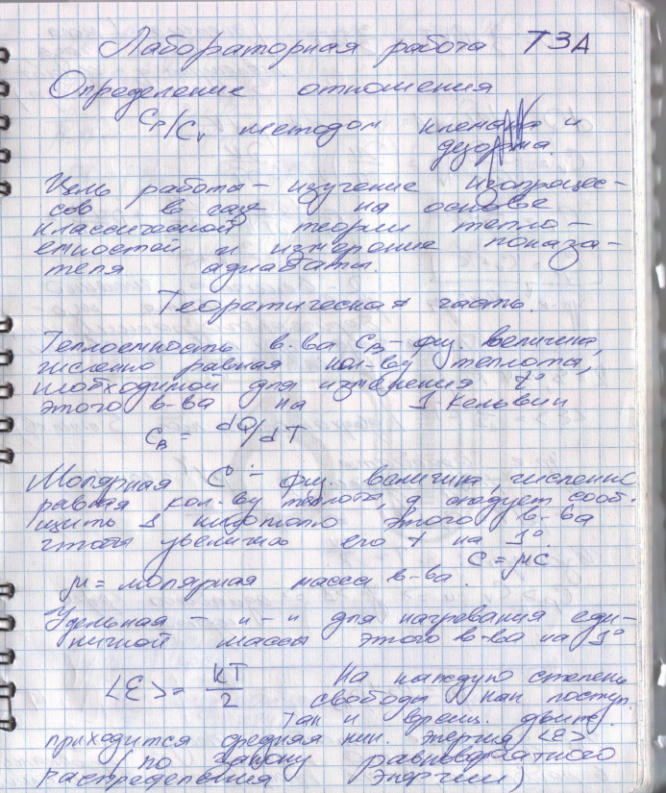 Лабораторная работа Т3А
Определение отношения
Cp/Cv методом клемана и
дезорма.
Цель работа – изучение изопроцес-
сов в газе на основе
классической теории тепло-
емкостей и измерение показа-
теля адиабаты.
Теоретическая часть.
Теплоемкость в-ва Cв – физ. величина,
численно равная кол-ву теплота,
необходимой для изменения t°
этого в-ва на 1 кельвин
Cв = dQ/dT
Молярная C – физ. величина, численно
равная кол-ву теплота, следует сооб-
щить 1 этого в-ва
чтобы увеличить его t на 1°.
C = μc
μ = молярная масса в-ва.
Удельная – и – и для нагревания еди-
ничной массы этого в-ва на 1°
<ε> = KT/2 На каждую степень
свободы как поступ.
так и времен. движ.
приходится средняя кин. энергия <ε>
(по закону
распределения энергии)